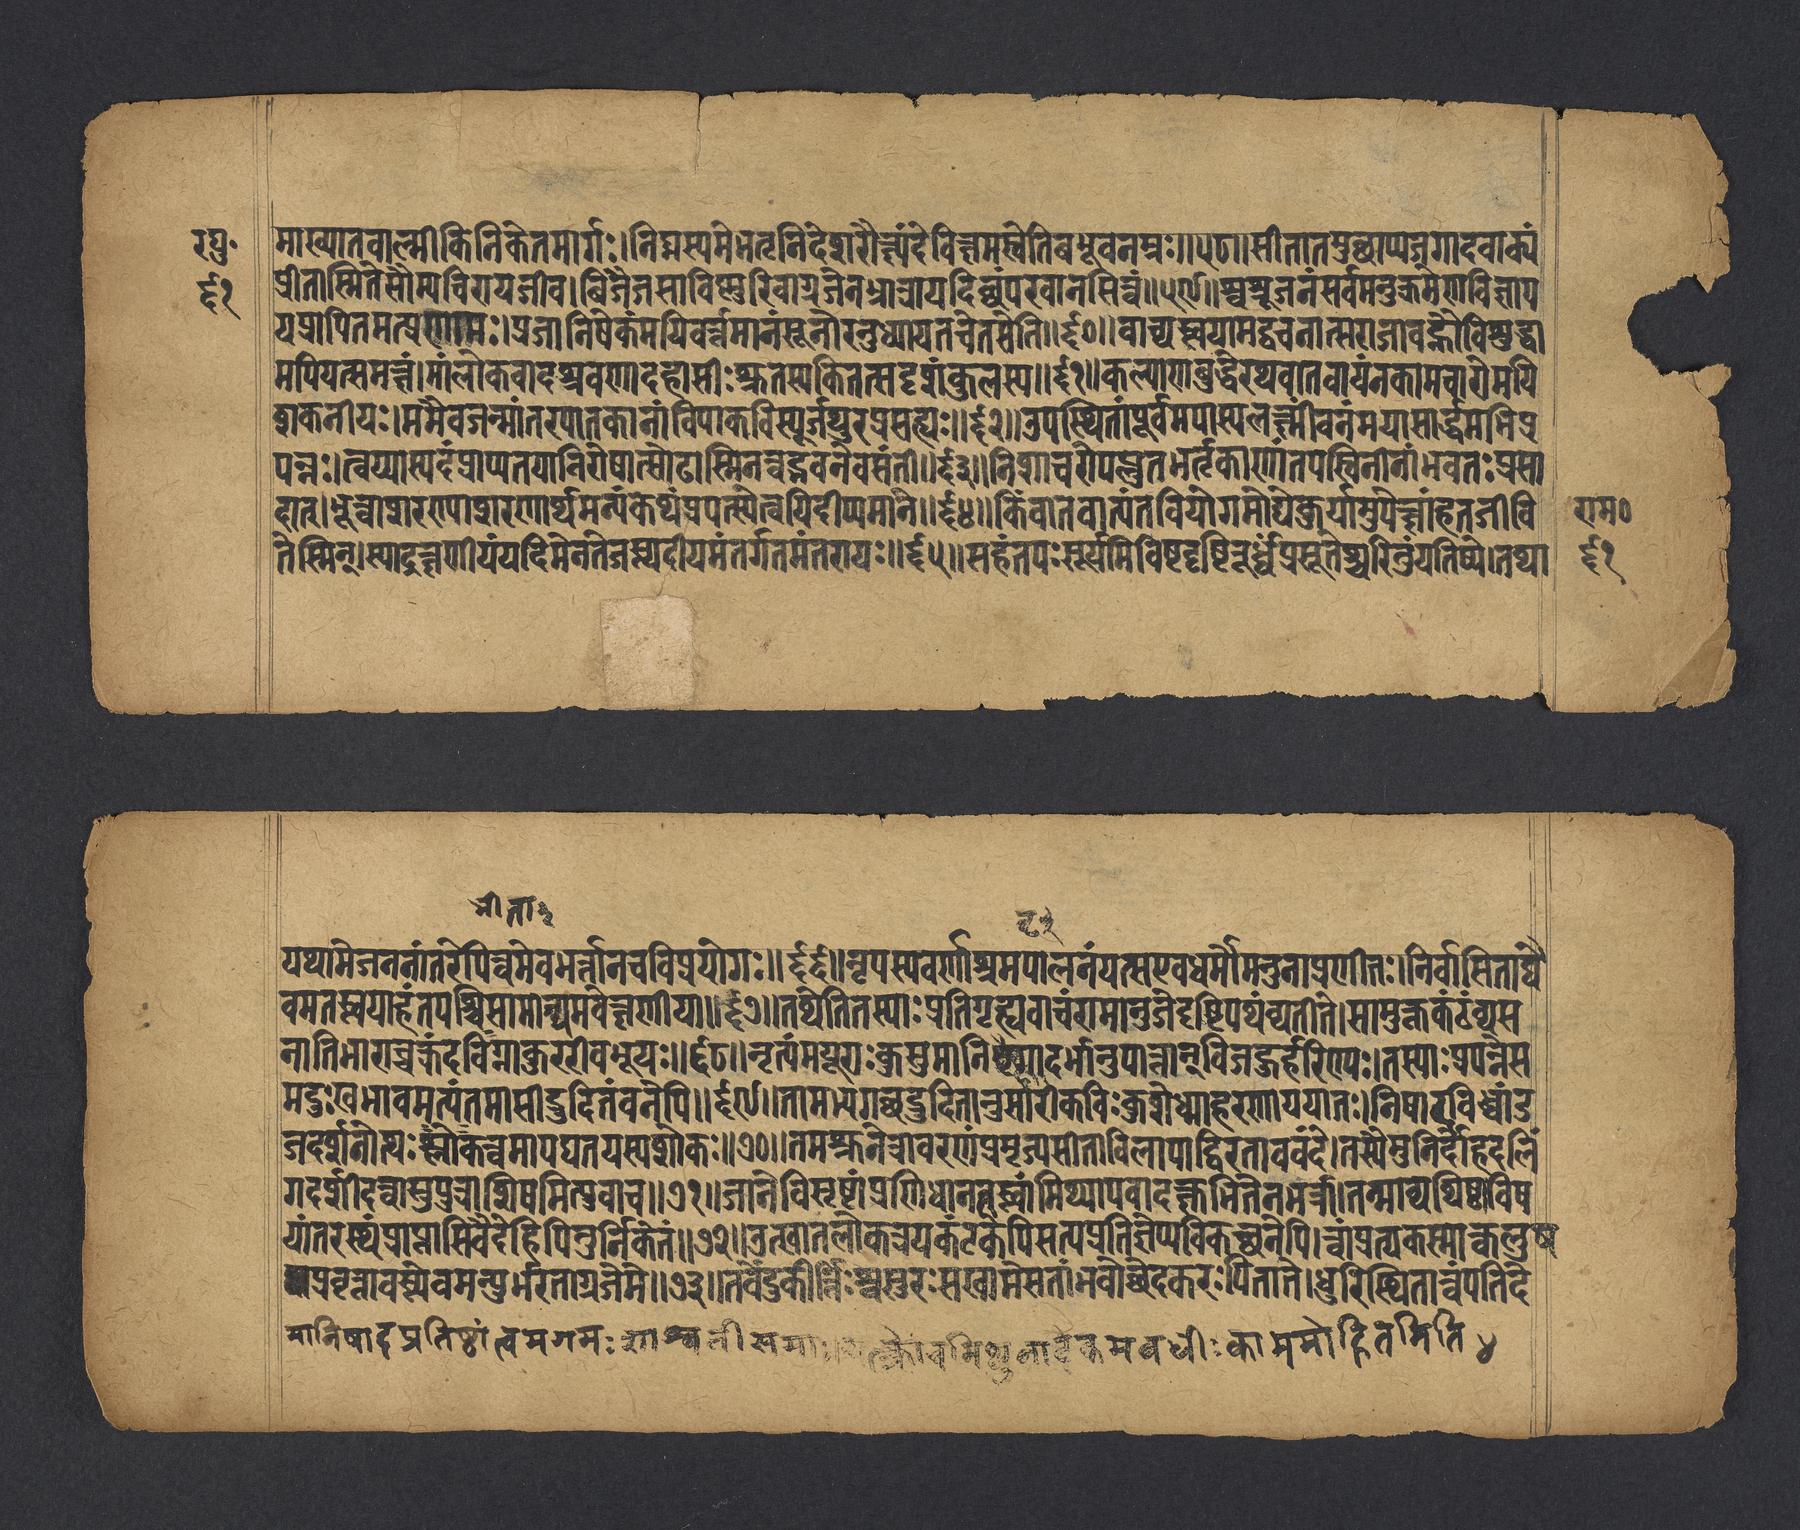 रघु॰
६१
माख्यातवाल्मीकिनिकेतमार्गः।निघ्नस्यमेभर्तृनिदेशरौक्ष्यंदेविक्षमस्वेतिबभूवनम्रः॥५८॥सीतातमुत्थाप्यजगादवाक्यं
प्रीतास्मितेसौम्यचिरायजीव।बिडौजसाविष्णुरिवाग्रजेनभ्रात्रायदित्थंपरवानसित्वं॥५९॥श्वश्रूजनंसर्वमनुक्रमेणविज्ञाप
यप्रापितमत्प्रणामः।प्रजानिषेकंमयिवर्त्तमानंसूनोरनुध्यायतचेतसेति॥६०॥वाच्यस्त्वयामद्वचनात्सराजावह्नौविशुद्धा
मपियत्समक्षं।मांलोकवादश्रवणादहासीःश्रुतस्यकिंतत्सदृशंकुलस्य॥६१॥कल्याणबुद्धेरथवातवायंनकामचारोमयि
शंकनीयः।ममैवजन्मांतरपातकानांविपाकविस्फूर्जथुरप्रसह्यः॥६२॥उपस्थितांपूर्वमपास्यलक्ष्मींवनंमयासार्द्धमभिप्र
पन्नः।त्वय्यास्पदंप्राप्यतयातिरोषात्सोढास्मिनत्वद्भवनेवसंती॥६३॥निशाचरोपप्लुतभर्तृकाणांतपस्विनीनांभवतःप्रसा
दात्।भूत्वाशरण्याशरणार्थमन्यंकथंप्रपत्स्येत्वयिदीप्यमाने॥६४॥किंवातवात्यंतवियोगमोघेकुर्यामुपेक्षांहतजीवि
तेस्मिन्।स्याद्रक्षणीयंयदिमेनतेजस्त्वदीयमंतर्गतमंतरायः॥६५॥साहंतपःसूर्यनिविष्टदृष्टिरूर्ध्वंप्रसूतेश्चरितुंयतिष्ये।तथा
राम॰
६१
सीता२
ट२
यथामेजननांतरेपित्वमेवभर्त्तानचविप्रयोगः॥६६॥नृपस्यवर्णाश्रमपालनंयत्सएवधर्मोमनुनाप्रणीतः।निर्वासिताप्ये
वमतस्त्वयाहंतपस्विसामान्यमवेक्षणीया॥६७॥तथेतितस्याःप्रतिगृह्यवाचंरामानुजेदृष्टिपथंव्यतीते।सामुक्तकंठंव्यस
नातिभाराच्चक्रंदविग्नाकुररीवभूयः॥६८॥नृत्यंमयूराःकुसुमानिवृक्षादर्भानुपात्तान्विजहुर्हरिण्यः।तस्याःप्रपन्नेस
मदुःखभावमत्यंतमासीद्रुदितंवनेपि॥६९॥तामभ्यगच्छद्रुदितानुसारीकविःकुशेध्माहरणाययातः।निषादविद्धांड
जदर्शनोत्थःश्लोकत्वमापद्यतयस्यशोकः॥७०॥तमश्रुनेत्रावरणंप्रमृज्यसीताविलापाद्विरताववंदे।तस्यैमुनिर्दोहदलिं
गदर्शीदत्वासुपुत्राशिषमित्युवाच॥७१॥जानेविसृष्टांप्रणिधानतस्त्वांमिथ्यापवादक्षुभितेनभर्त्रा।तन्माव्यथिष्ठाविष
यांतरस्थंप्राप्तासिवैदेहिपितुर्निकेतं॥७२॥उत्खातलोकत्रयकंटकेपिसत्यप्रतिज्ञेप्यविकत्थनेपि।त्वांप्रत्यकस्मात्कलुष
प्रवृत्तावस्त्येवमन्युर्भरताग्रजेमे॥७३॥तवेंदुकीर्त्तिःश्वसुरःसखामेसतांभवोच्छेदकरःपिताते।धुरिस्थितात्वंपतिदे
मानिषादप्रतिष्ठांत्वमगमःशाश्वतीःसमाः।यत्क्रौंचमिथुनादेकमवधीःकाममोहितमिति४